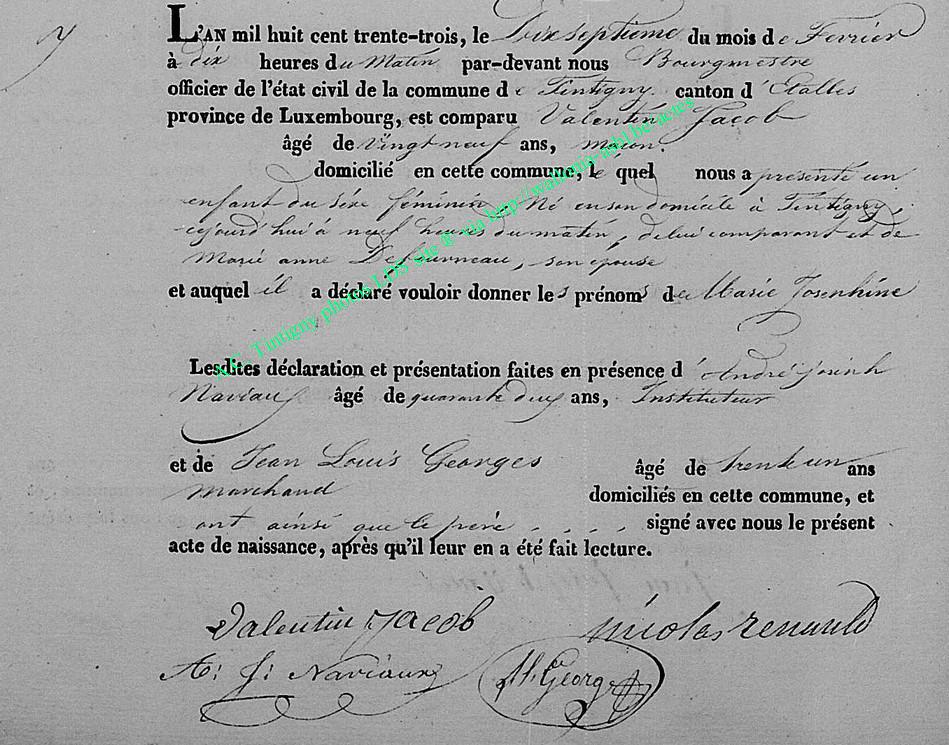 7
L'AN mil huit cent trente-trois, le Dix septieme du mois de Fevrier
à dix heures du Matin par-devant nous Bourgmestre
officier de l'état civil de la commune de Tintigny canton d'Etalles
province de Luxembourg, est comparu Valentin Jacob
âgé de vingt neuf ans,
domicilié en cette commune, le quel nous a présenté un
enfant du séxe féminin, Né en son domicile à Tintigny,
cejourd'hui à neuf heures du matin, de lui comparant et de
Marie anne, son épouse
et auquel il a déclaré vouloir donner les prénoms de Marie Josephine
Lesdites déclaration et présentation faites en présence d'André Joseph
Naviaux âgé de quarante deux ans, Instituteur
et de Jean Louis Georges âgé de trente un ans
marchand domiciliés en cette commune, et
ont ainsi que le père . . . . signé avec nous le présent
acte de naissance, après qu'il leur en a été fait lecture.
Valentin Jacob nicolas renauld
A: J: Naviaux Georges
A.E. Tintigny photos LDS site ® via http://wallonia-asbl.be/actes